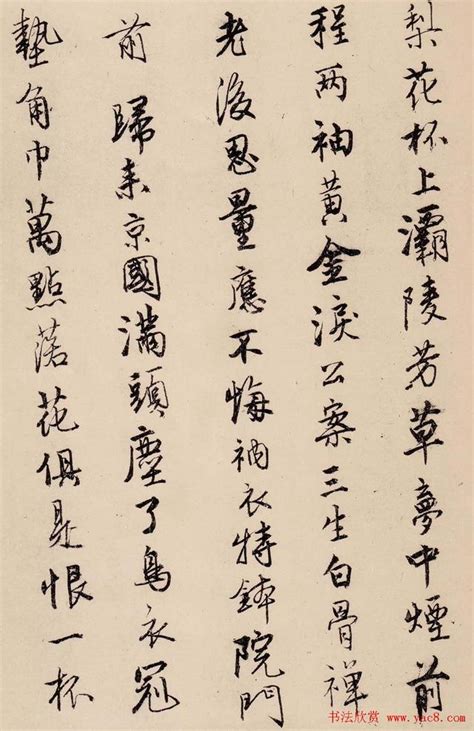 梨花杯上灞陵芳草夢中煙前
程两袖黄金淚公案三生白骨禅
老後思量應不悔衲衣持鉢院門
前 歸来京國滿頭塵了鳥衣冠
墊角巾萬點落花俱是恨一杯
书法欣赏 www.yac8.com